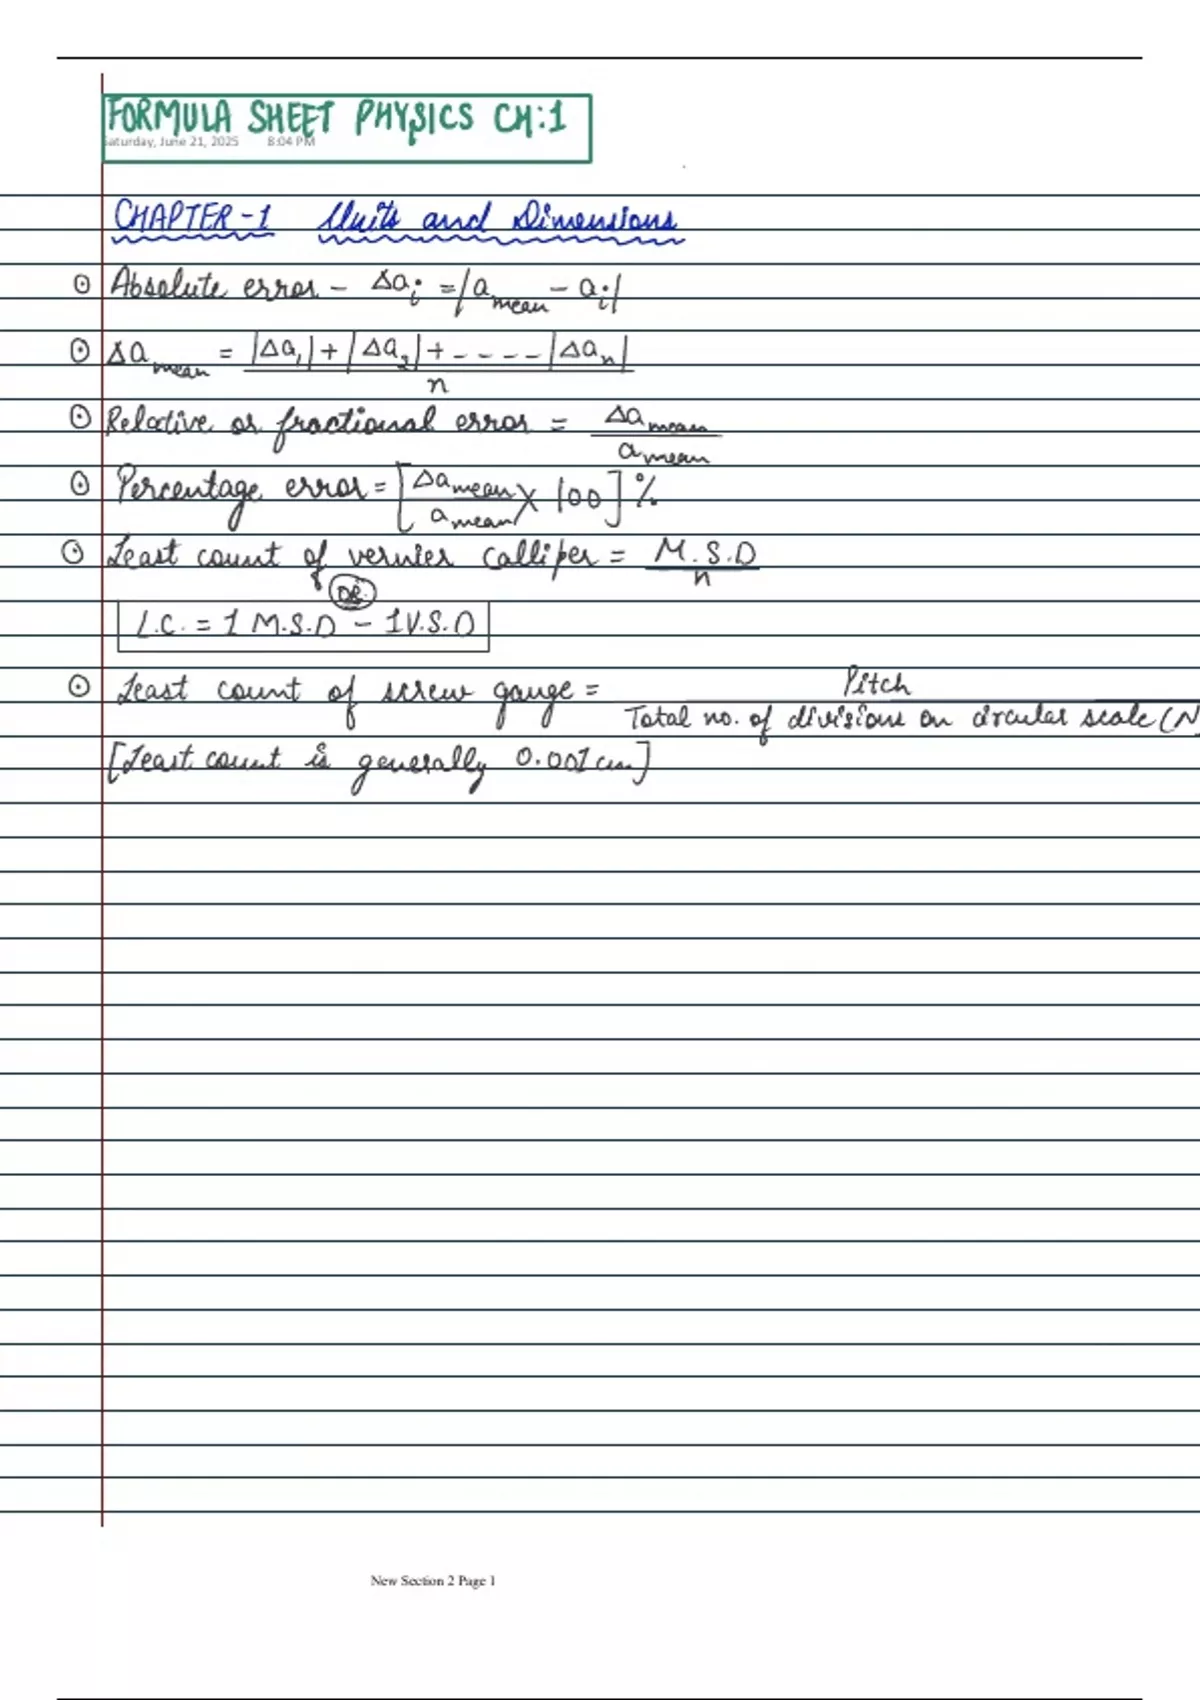 FORMULA SHEET PHYSICS CH:1
Saturday, June 21, 2025 8:04 PM
CHAPTER-1 Units and Dimensions
⊙ Absolute error - Δaᵢ = |a_mean - aᵢ|
⊙ Δa_mean = |Δa₁| + |Δa₂| + - - - - |Δaₙ|
n
⊙ Relative or fractional error = Δa_mean
a_mean
⊙ Percentage error = [Δa_mean / a_mean × 100] %
⊙ Least count of vernier calliper = M.S.D
n
OR
L.C. = 1 M.S.D - 1 V.S.D
⊙ Least count of screw gauge = Pitch
Total no. of divisions on circular scale (N
[Least count is generally 0.001 cm]
New Section 2 Page 1